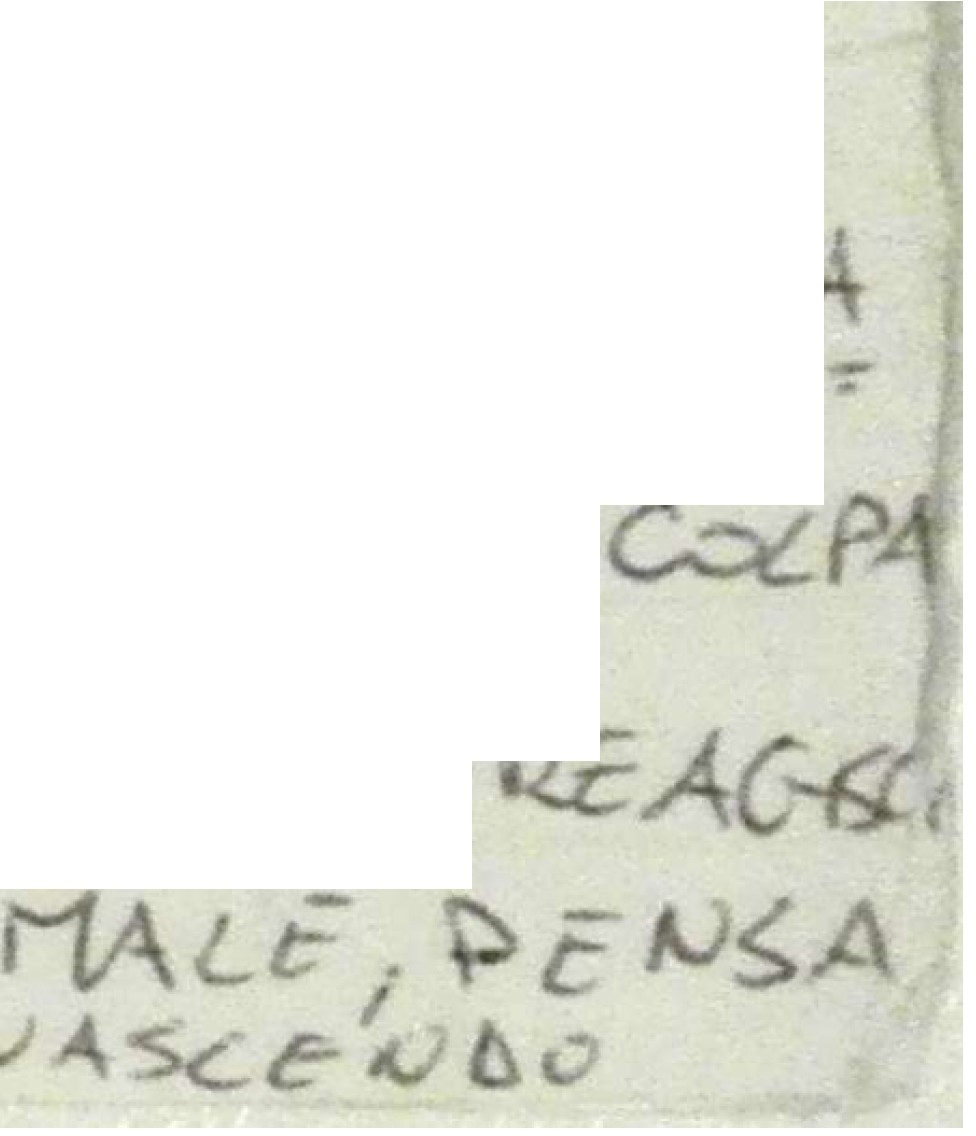 A
=
COLPA
REAGISCI
MALE, PENSA
NASCENDO